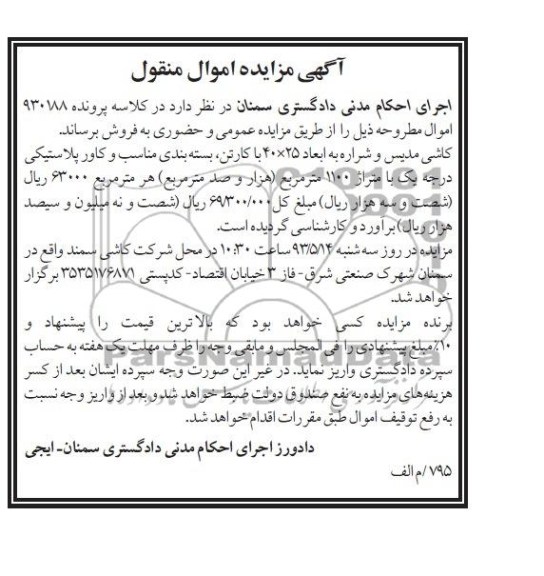 آگهی مزایده اموال منقول
اجرای احکام مدنی دادگستری سمنان در نظر دارد در کلاسه پرونده ۹۳۰۱۸۸
اموال مطروحه ذیل را از طریق مزایده عمومی و حضوری به فروش برساند.
کاشی مدیس و شراره به ابعاد ۲۵×۴۰ با کارتن، بسته بندی مناسب و کاور پلاستیکی
درجه یک با متراژ ۱۱۰۰ مترمربع (هزار و صد مترمربع) هر مترمربع ۶۳۰۰۰ ریال
(شصت و سه هزار ریال) مبلغ کل ۶۹/۳۰۰/۰۰۰ ریال (شصت و نه میلیون و سیصد
هزار ریال) برآورد و کارشناسی گردیده است.
مزایده در روز سه شنبه ۹۳/۵/۱۴ ساعت ۱۰:۳۰ در محل شرکت کاشی سمند واقع در
سمنان شهرک صنعتی شرق - فاز ۳ خیابان اقتصاد - کدپستی ۳۵۳۵۱۷۶۸۷۱ برگزار
خواهد شد.
برنده مزایده کسی خواهد بود که بالاترین قیمت را پیشنهاد و
۱۰٪ مبلغ پیشنهادی را فی المجلس و مابقی وجه را ظرف مهلت یک هفته به حساب
سپرده دادگستری واریز نماید. در غیر این صورت وجه سپرده ایشان بعد از کسر
هزینه های مزایده به نفع صندوق دولت ضبط خواهد شد و بعد از واریز وجه نسبت
به رفع توقیف اموال طبق مقررات اقدام خواهد شد.
دادورز اجرای احکام مدنی دادگستری سمنان - ایجی
۷۹۵/م الف
ParsNamadData